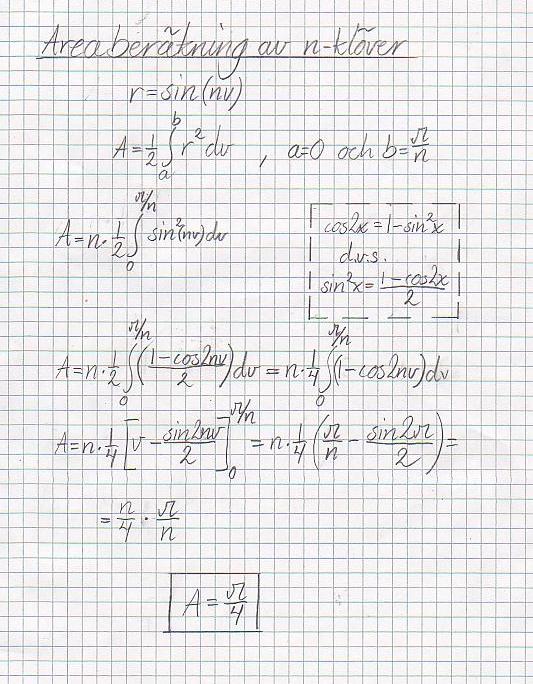 Areaberäkning av n-klöver
r = sin(nv)
A = 1/2 ∫_a^b r² dv , a=0 och b=π/n
A = n · 1/2 ∫_0^{π/n} sin²(nv) dv
cos2x = 1 - sin²x
d.v.s.
sin²x = (1 - cos2x)/2
A = n · 1/2 ∫_0^{π/n} ((1 - cos2nv)/2) dv = n · 1/4 ∫_0^{π/n} (1 - cos2nv) dv
A = n · 1/4 [v - sin2nv/2]_0^{π/n} = n · 1/4 (π/n - sin2π/2) =
= n/4 · π/n
A = π/4